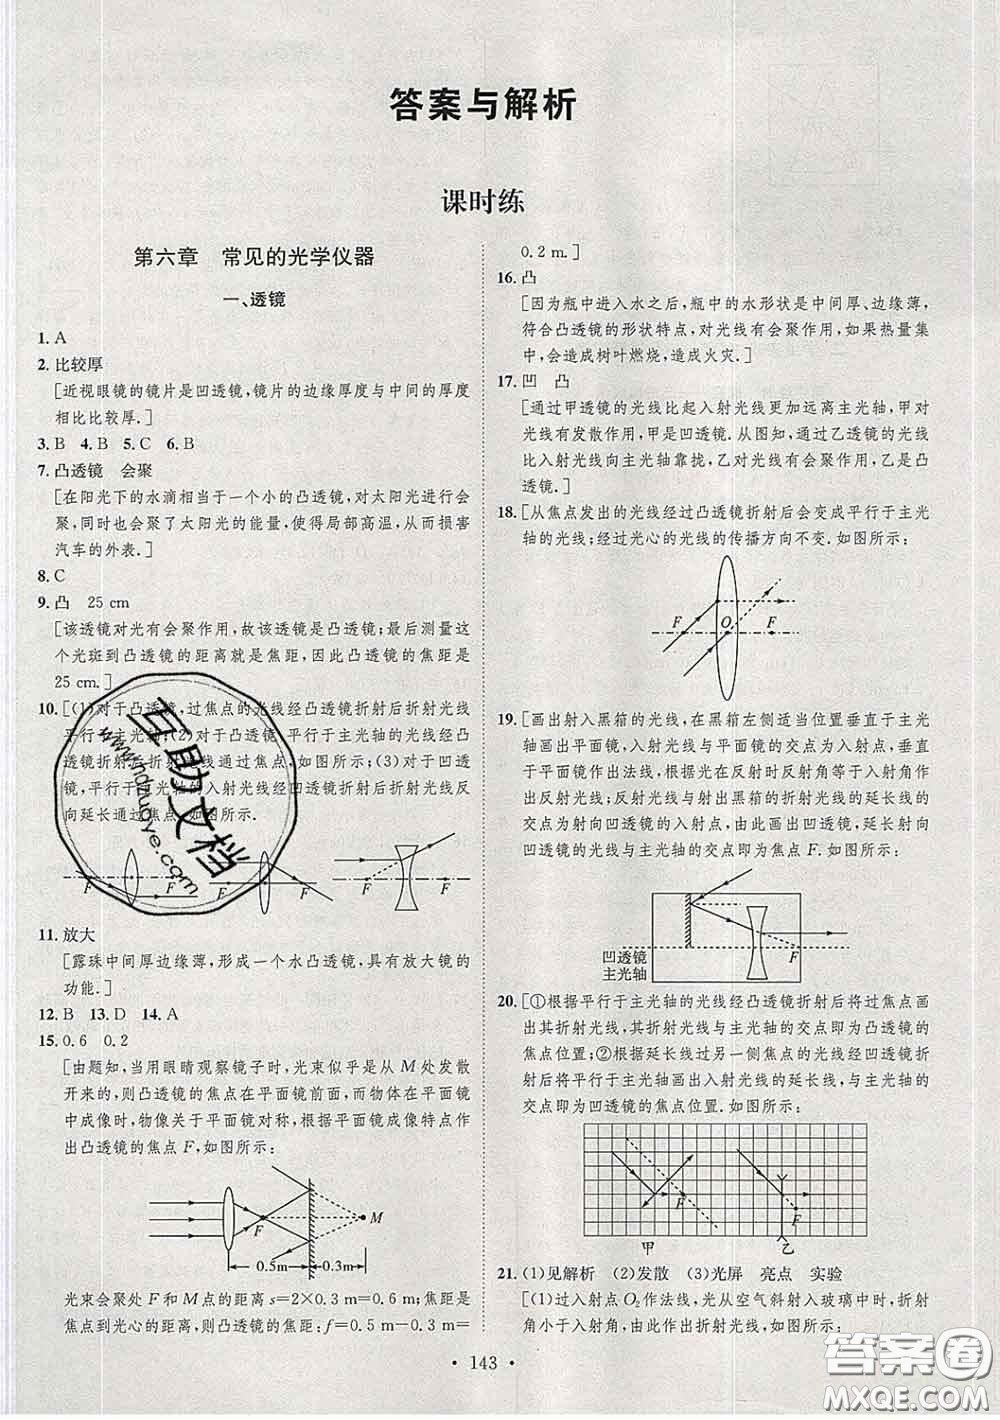 答案与解析
课时练
第六章 常见的光学仪器
一、透镜
1. A
2. 比较厚
[近视眼镜的镜片是凹透镜,镜片的边缘厚度与中间的厚度
相比比较厚.]
3. B 4. B 5. C 6. B
7. 凸透镜 会聚
[在阳光下的水滴相当于一个小的凸透镜,对太阳光进行会
聚,同时也会聚了太阳光的能量,使得局部高温,从而损害
汽车的外表.]
8. C
9. 凸 25 cm
[该透镜对光有会聚作用,故该透镜是凸透镜;最后测量这
个光斑到凸透镜的距离就是焦距,因此凸透镜的焦距是
25 cm.]
10. [(1)对于凸透镜,过焦点的光线经凸透镜折射后折射光线
平行于主光轴;(2)对于凸透镜,平行于主光轴的光线经凸
透镜折射后折射光线通过焦点,如图所示;(3)对于凹透
镜,平行于主光轴的入射光线经凹透镜折射后折射光线反
向延长通过焦点,如图所示.
F F F F F F
11. 放大
[露珠中间厚边缘薄,形成一个水凸透镜,具有放大镜的
功能.]
12. B 13. D 14. A
15. 0.6 0.2
[由题知,当用眼睛观察镜子时,光束似乎是从 M 处发散
开来的,则凸透镜的焦点在平面镜前面,而物体在平面镜
中成像时,物像关于平面镜对称,根据平面镜成像特点作
出凸透镜的焦点 F,如图所示:
F M
0.5m 0.3m
光束会聚处 F 和 M 点的距离 s=2×0.3 m=0.6 m;焦距是
焦点到光心的距离,则凸透镜的焦距:f=0.5 m-0.3 m=
0.2 m.]
16. 凸
[因为瓶中进入水之后,瓶中的水形状是中间厚、边缘薄,
符合凸透镜的形状特点,对光线有会聚作用,如果热量集
中,会造成树叶燃烧,造成火灾.]
17. 凹 凸
[通过甲透镜的光线比起入射光线更加远离主光轴,甲对
光线有发散作用,甲是凹透镜.从图知,通过乙透镜的光线
比入射光线向主光轴靠拢,乙对光线有会聚作用,乙是凸
透镜.]
18. [从焦点发出的光线经过凸透镜折射后会变成平行于主光
轴的光线;经过光心的光线的传播方向不变.如图所示:
F O F
19. [画出射入黑箱的光线,在黑箱左侧适当位置垂直于主光
轴画出平面镜,入射光线与平面镜的交点为入射点,垂直
于平面镜作出法线,根据光在反射时反射角等于入射角
作出反射光线;反射光线与射出黑箱的折射光线的延长线的
交点为射向凹透镜的入射点,由此画出凹透镜,过射向
凹透镜的光线与主光轴的交点即为焦点 F.如图所示:
凹透镜
主光轴
F
20. [①根据平行于主光轴的光线经凸透镜折射后将过焦点画
出其折射光线,其折射光线与主光轴的交点即为凸透镜的
焦点位置;②根据延长线过另一侧焦点的光线经凹透镜折
射后将平行于主光轴画出入射光线的延长线,与主光轴的
交点即为凹透镜的焦点位置.如图所示:
F F
甲 乙
21. (1)见解析 (2)发散 (3)光屏 亮点 实验
[(1)过入射点O₂作法线,光从空气斜射入玻璃中时,折射
角小于入射角,由此作出折射光线,如图所示:
· 143 ·
互助文档
www.hdzuoye.com
答案圈
MXQE.COM